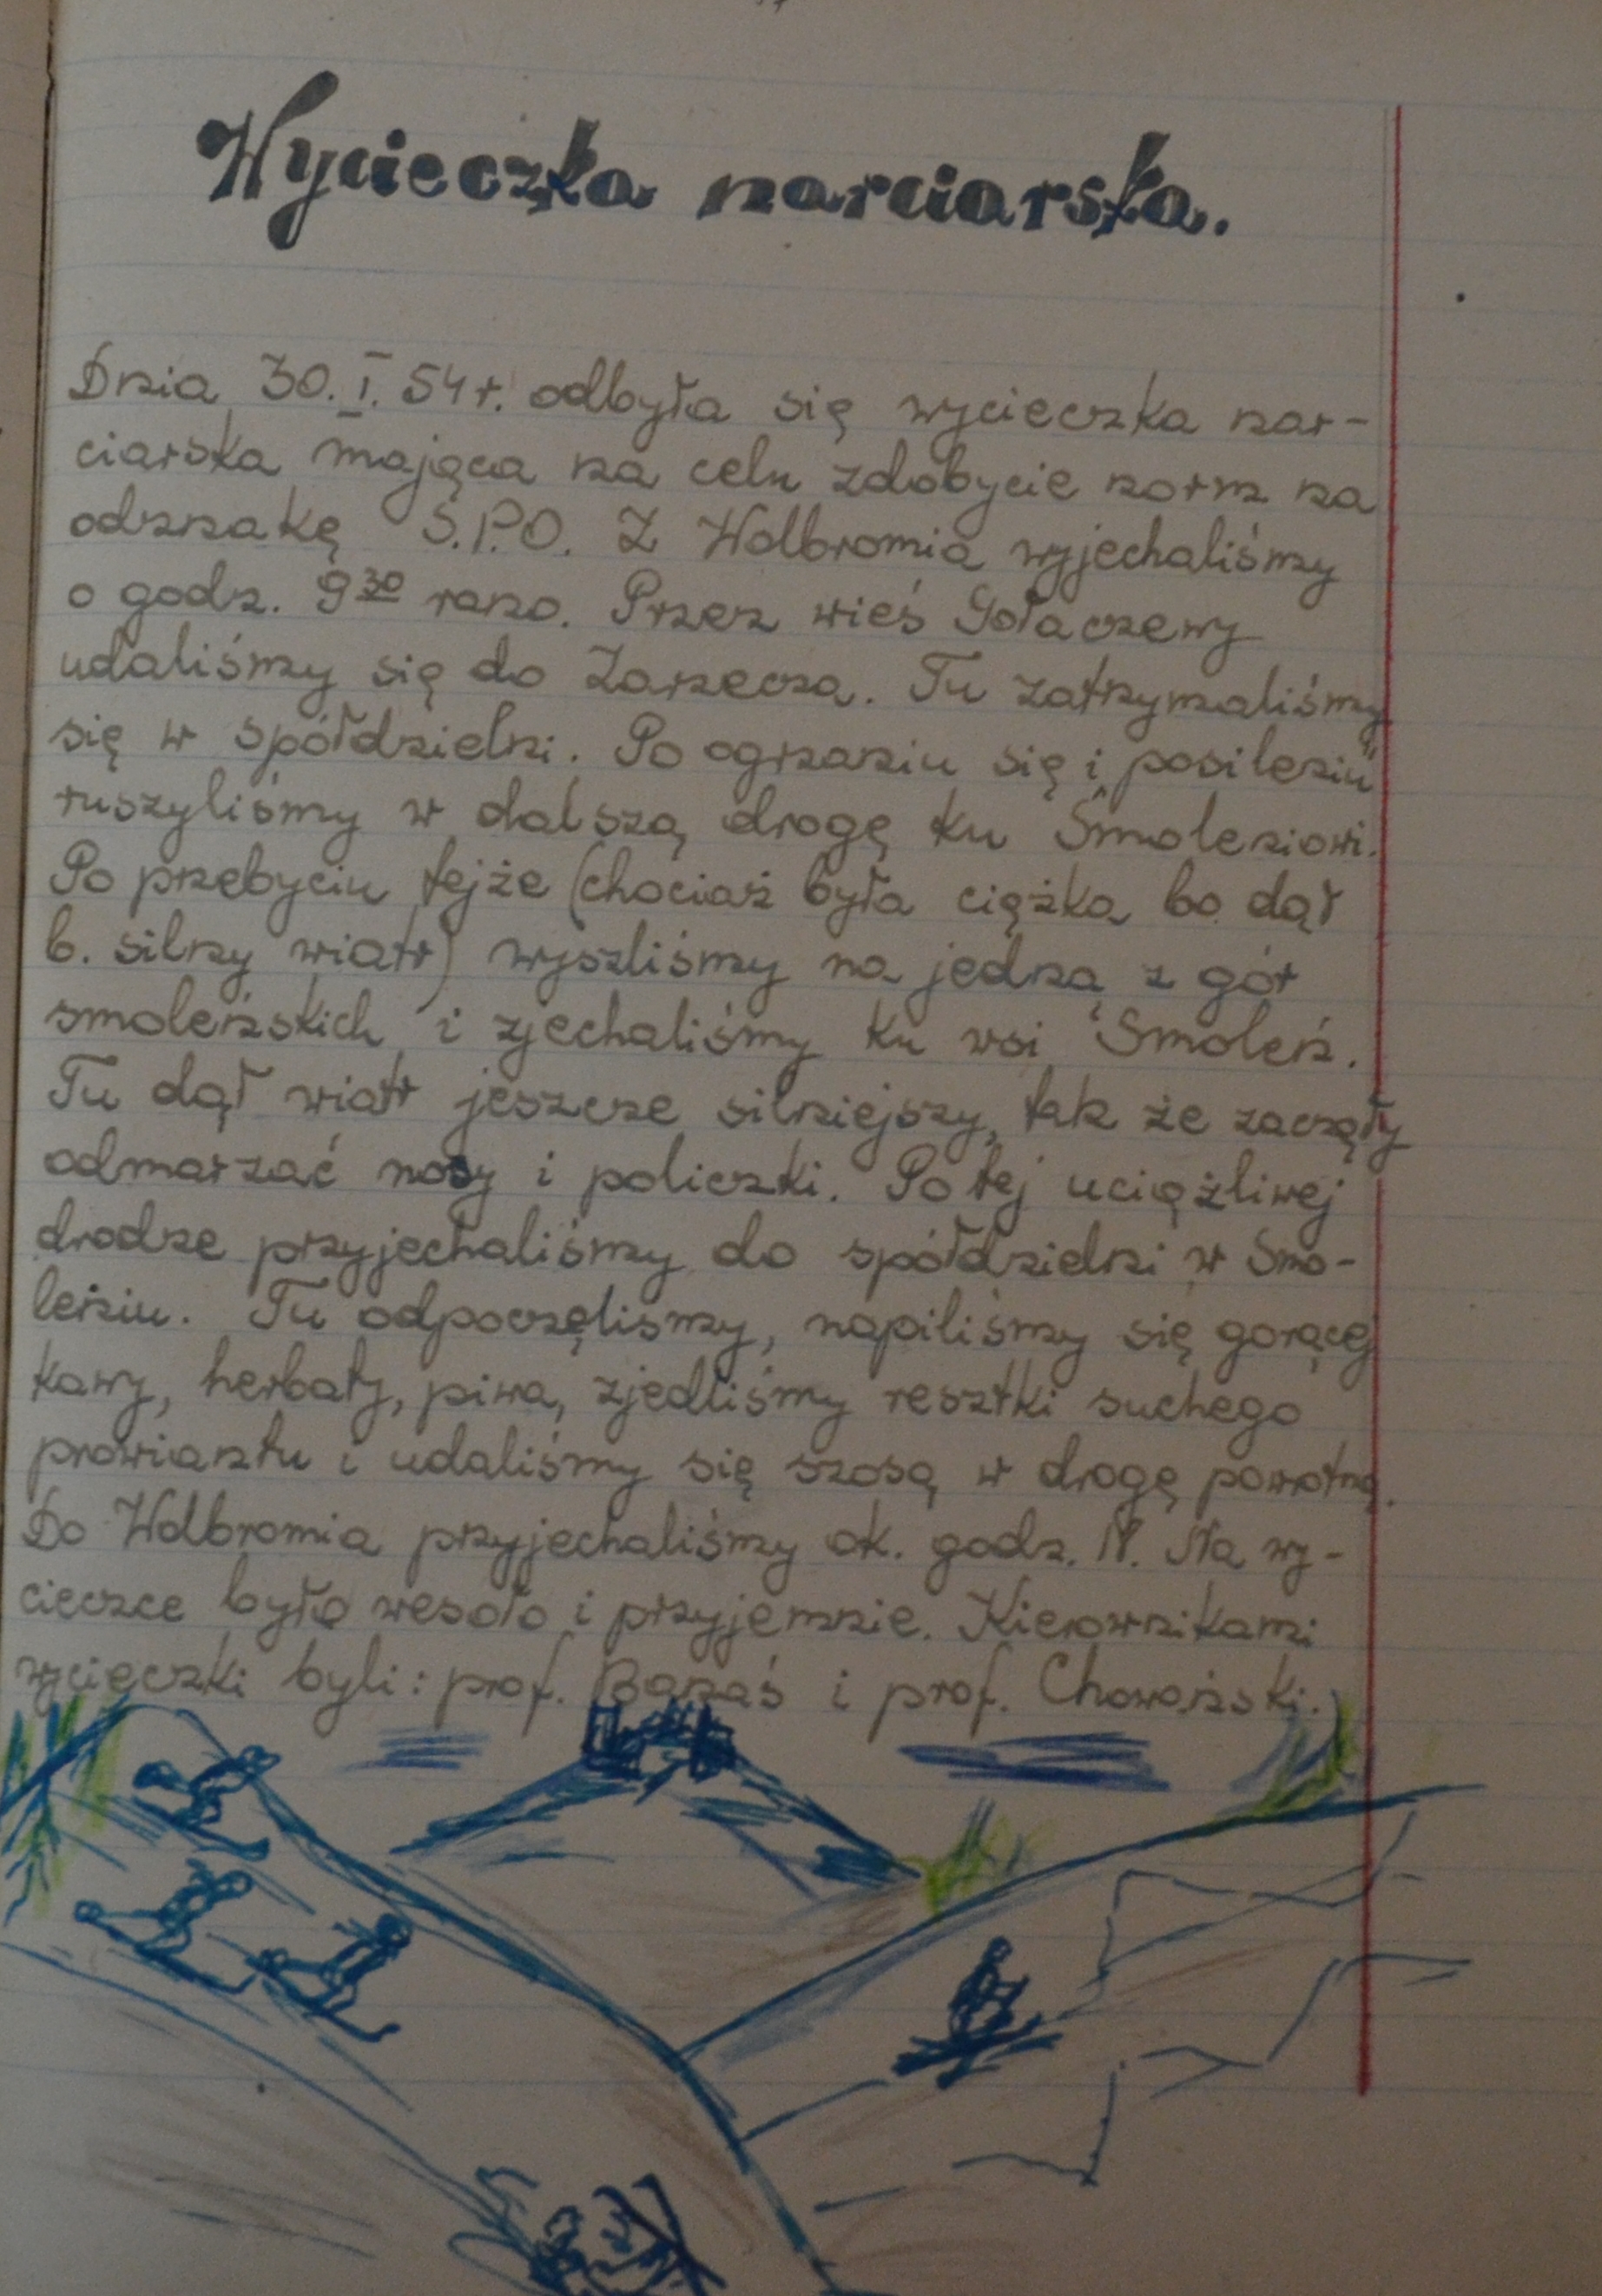 Wycieczka narciarska.
Dnia 30.I.54r. odbyła się wycieczka nar-
ciarska mająca na celu zdobycie norm na
odznakę S.P.O. Z Wolbromia wyjechaliśmy
o godz. 9³⁰ rano. Przez wieś Gołaczewy
udaliśmy się do Zarzecza. Tu zatrzymaliśmy
się w spółdzielni. Po ogrzaniu się i posileniu
ruszyliśmy w dalszą drogę ku Smoleniowi.
Po przebyciu tejże (chociaż była ciężka bo dął
b. silny wiatr) wyszliśmy na jedną z gór
smoleńskich i zjechaliśmy ku wsi Smoleń.
Tu dął wiatr jeszcze silniejszy, tak że zaczęły
odmarzać nosy i policzki. Po tej uciążliwej
drodze przyjechaliśmy do spółdzielni w Smo-
leniu. Tu odpoczęlismy, napiliśmy się gorącej
kawy, herbaty, piwa, zjedliśmy resztki suchego
prowiantu i udaliśmy się szosą w drogę powrotną.
Do Wolbromia przyjechaliśmy ok. godz. Na wy-
cieczce było wesoło i przyjemnie. Kierownikami
wycieczki byli: prof. Banaś i prof. Chowański.